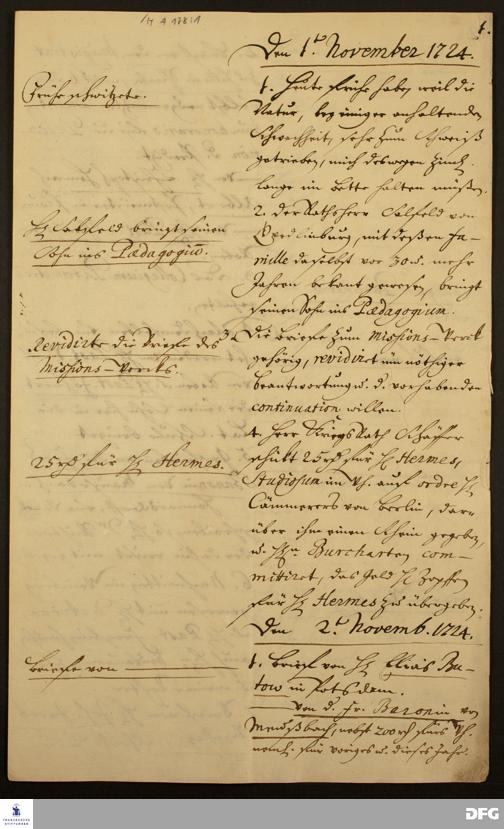 H A 178:1
1.
Den 1t. November 1724.
Frühe schwitzete.
1. Heute frühe haben weil die
Natur, bey einiger anhaltenden
Schwachheit, sehr zum Schweiß
getrieben, mich deswegen zieml.
lange im Bette halten müßen.
H. Salfeld bringt seinen
Sohn ins Pædagogiū.
2. Der Rathsherr Salfeld von
Quedlinburg, mit deßen Fa-
milie daselbst vor 30 u. mehr
Jahren bekant gewesen, bringt
seinen Sohn ins Pædagogium.
Revidirte die Briefe des
Missions-Wercks.
3. Die Briefe zum Missions-Werck
gehörig, revidiret um nöthiger
beantwortung u. d. vorhabenden
continuation willen.
25 rh für H. Hermes.
4. Herr Kriegs Rath Schäffer
schickt 25 rh für H. Hermes,
Studiosum im auf ordre H.
Cämmerers von Berlin, darü-
über ihm einen Schein gegeben,
u. Burcharten com-
mittiret, das Geld H. Hopffen
für H. Hermes zu übergeben.
Den 2t. Novemb. 1724.
Briefe von
1. Brief von H. Elias Bu-
tow in Potsdam.
von d. Fr. Baronin von
nebst 200 rh fürs
für voriges u. dieses Jahr.
FRANCKESCHE
STIFTUNGEN
DFG